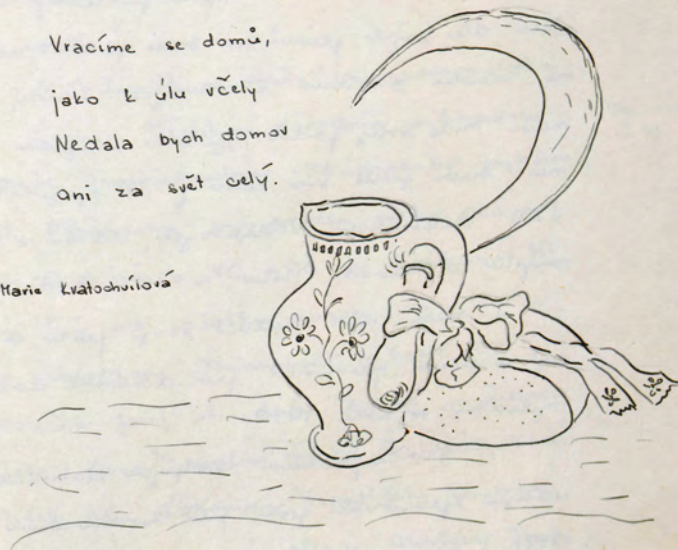 Vracíme se domů,
jako k úlu včely
Nedala bych domov
ani za svět celý.
Marie Kratochvílová